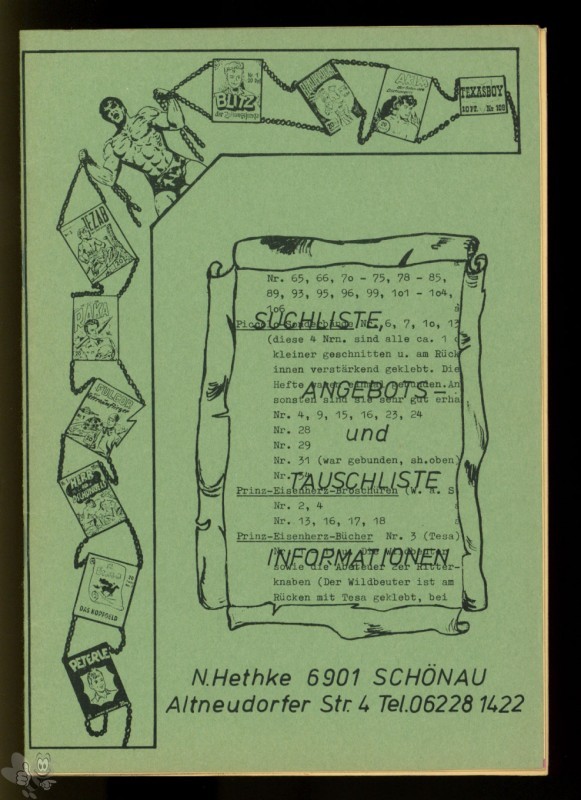 BLITZ
AKIM
TEXASBOY
20 PF. Nr 108
EZAB
RAKA
DAS KOPFGELD
PETERLE
Nr. 65, 66, 7o - 75, 78 - 85,
89, 93, 95, 96, 99, 1o1 - 1o4,
1o6
SUCHLISTE,
Nr. 6, 7, 1o, 13
(diese 4 Nrn. sind alle ca. 1 c
kleiner geschnitten u. am Rück
innen verstärkend geklebt. Die
Hefte waren gebunden. An
ANGEBOTS-
sonsten sind sie sehr gut erha
Nr. 4, 9, 15, 16, 23, 24
Nr. 28
und
Nr. 29
Nr. 31 (war gebunden, sh.oben)
Nr.
TAUSCHLISTE
Prinz-Eisenherz-Broschüren (W. a. S
Nr. 2, 4
Nr. 13, 16, 17, 18
Prinz-Eisenherz-Bücher Nr. 3 (Tesa)
INFORMATIONEN
sowie die Ababfeder der Ritter-
knaben (Der Wildbeuter ist am
Rücken mit Tesa geklebt, bei
N.Hethke 6901 SCHÖNAU
Altneudorfer Str. 4 Tel.06228 1422